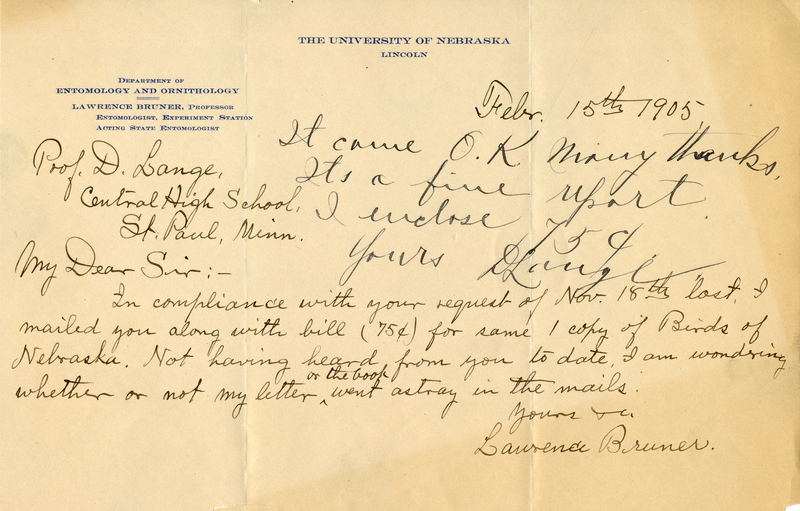 THE UNIVERSITY OF NEBRASKA
LINCOLN
DEPARTMENT OF
ENTOMOLOGY AND ORNITHOLOGY
LAWRENCE BRUNER, PROFESSOR
ENTOMOLOGIST, EXPERIMENT STATION
ACTING STATE ENTOMOLOGIST
Febr. 15th 1905,
Prof. D. Lange,
Central High School,
St. Paul, Minn.
It came O.K. Many thanks.
Its a fine report.
I enclose 75¢
Yours DLange
My Dear Sir:-
In compliance with your request of Nov. 18th last, I
mailed you along with bill (75¢) for same 1 copy of Birds of
Nebraska. Not having heard from you to date, I am wondering
whether or not my letter or the book went astray in the mails.
Yours &c.
Lawrence Bruner.